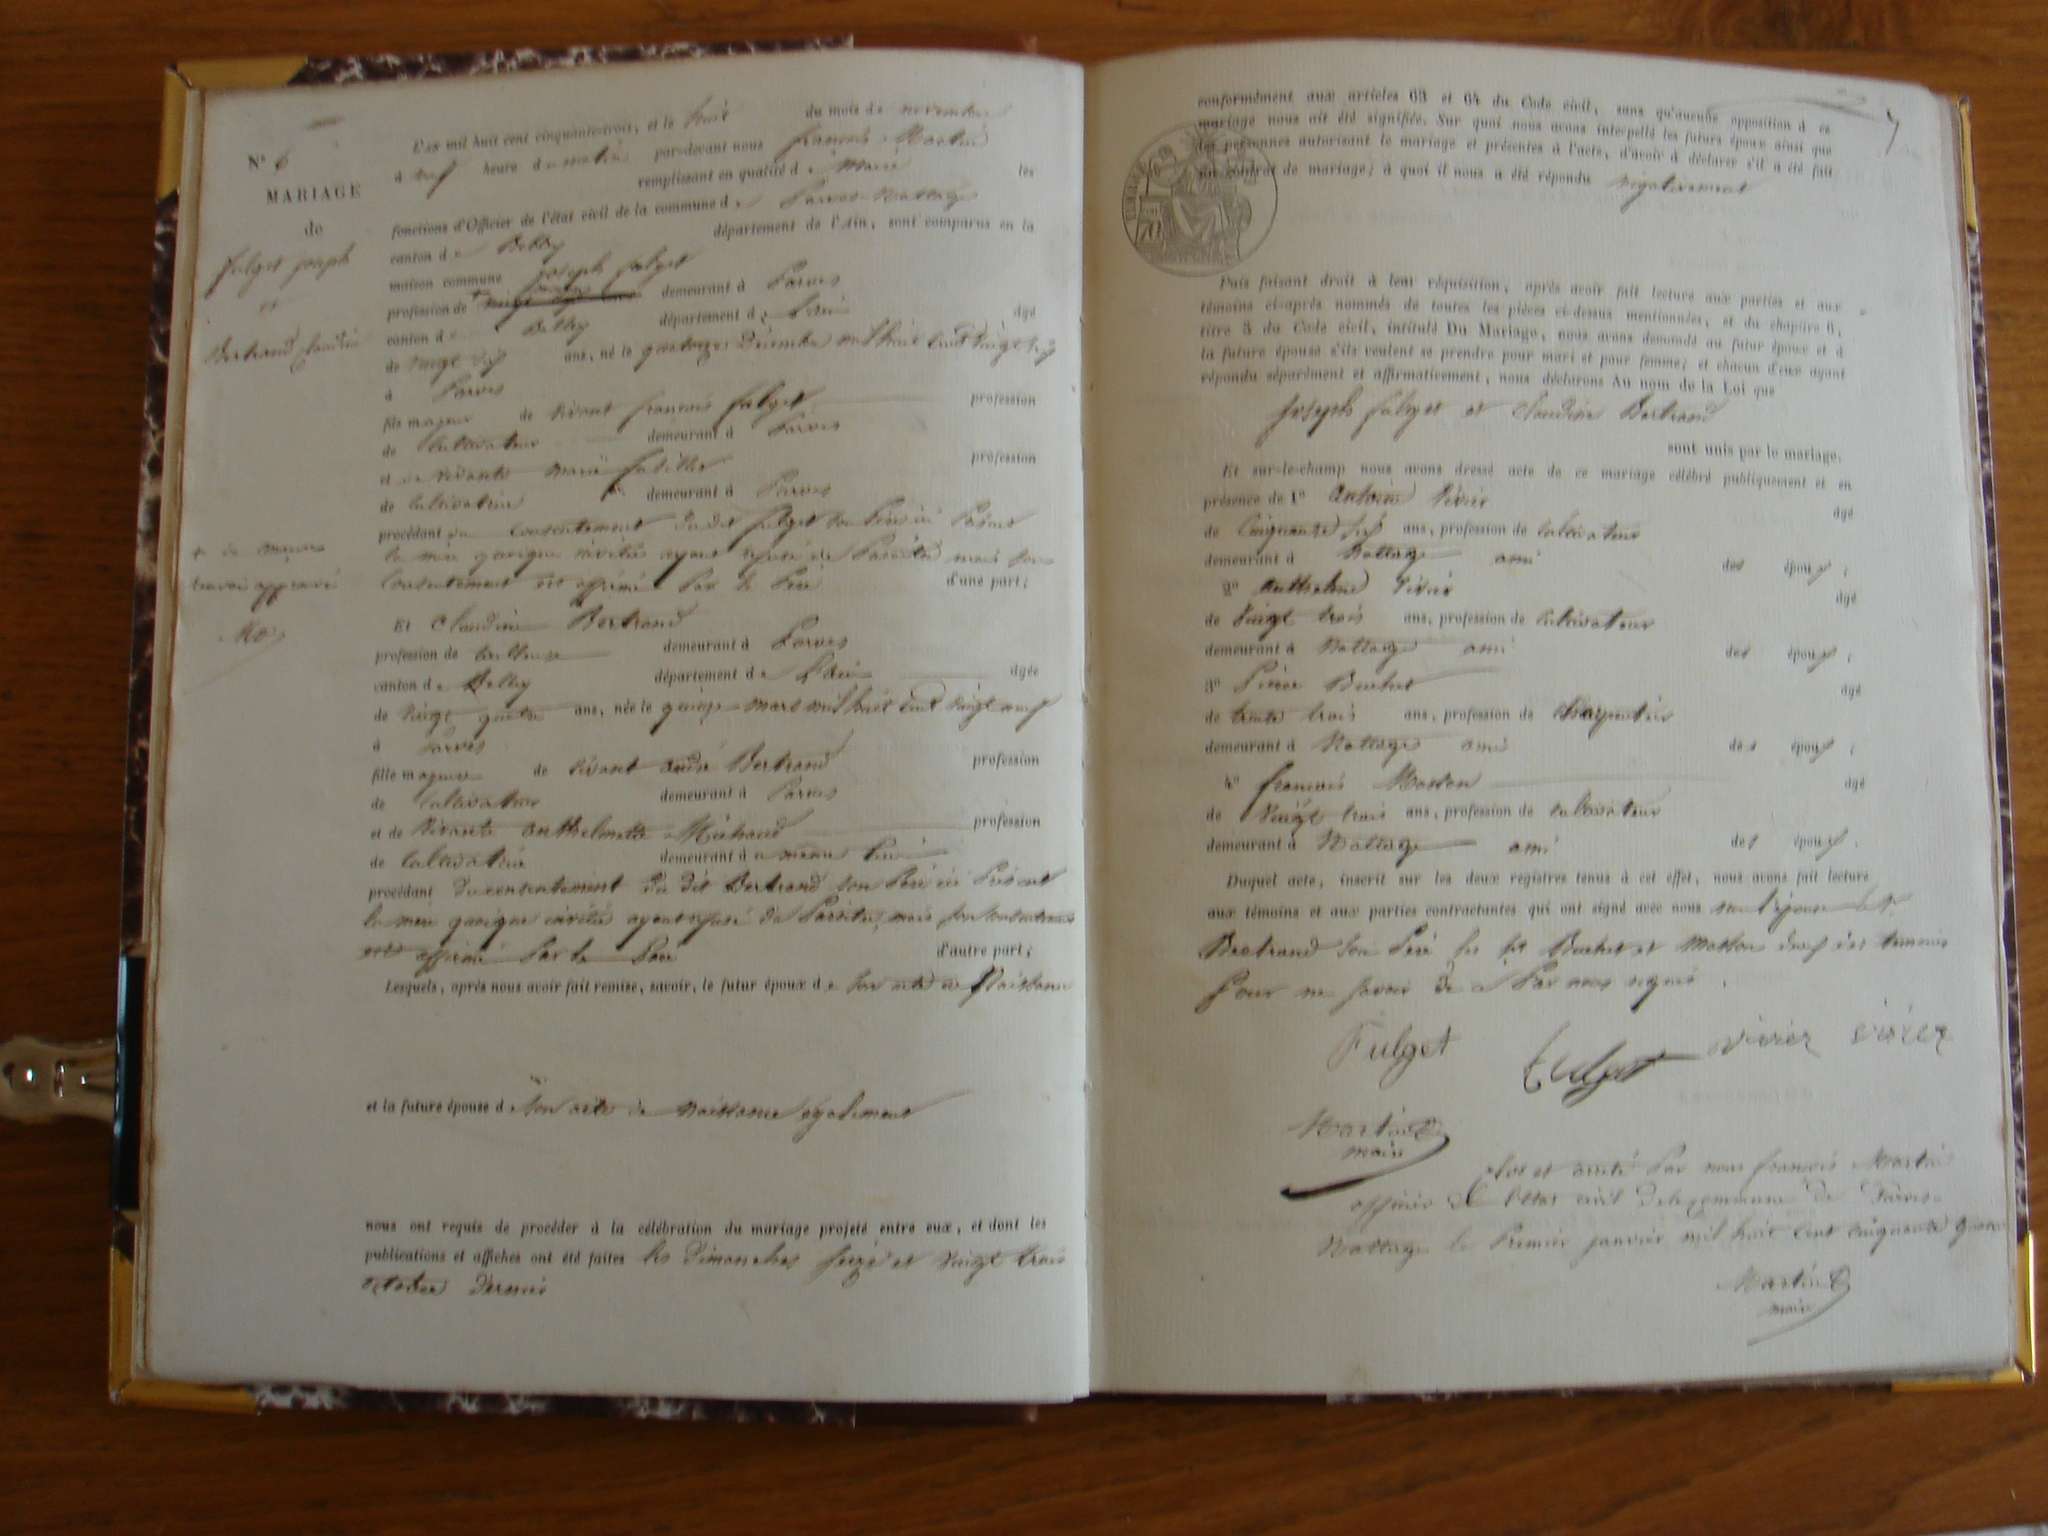 N° 6
MARIAGE
de
fulget joseph
et
Bertrand Claudine
L'an mil huit cent cinquante-trois, et le huit du mois de novembre
à neuf heure du matin par-devant nous françois Martin
remplissant en qualité de Maire les
fonctions d'Officier de l'état civil de la commune de Parves-Nattage
canton de Belley département de l'Ain, sont comparus en la
maison commune joseph fulget
profession de demeurant à Parves
canton de Belley département de L'ain âgé
de vingt six ans, né le quatorze Décembre mil huit cent vingt six
à Parves
fils majeur de vivant françois fulget profession
de Cultivateur demeurant à Parves
et de vivante marie profession
de Cultivatrice demeurant à Parves
procédant du Consentement du dit fulget son Père ici Présent
la mère quoique invitée ayant refusé de Paraître mais son
Consentement est affirmé Par le Père d'une part;
Et Claudine Bertrand
profession de demeurant à Parves
canton de Belley département de L'ain âgée
de vingt quatre ans, née le quinze mars mil huit cent vingt neuf
à Parves
fille majeure de vivant andré Bertrand profession
de Cultivateur demeurant à Parves
et de vivante anthelmette profession
de Cultivatrice demeurant à même lieu
procédant du consentement du dit Bertrand son Père ici Présent
la mère quoique invitée ayant refusé de Paraître, mais son consentement
est affirmé Par le Père d'autre part;
Lesquels, après nous avoir fait remise, savoir, le futur époux de son acte de Naissance
et la future épouse de son acte de Naissance également
nous ont requis de procéder à la célébration du mariage projeté entre eux, et dont les
publications et affiches ont été faites les dimanches seize et vingt trois
octobre dernier
approuvé
7
conformément aux articles 63 et 64 du Code civil, sans qu'aucune opposition à ce
mariage nous ait été signifiée. Sur quoi nous avons interpellé les futurs époux ainsi que
des personnes autorisant le mariage et présentes à l'acte, d'avoir à déclarer s'il a été fait
un contrat de mariage; à quoi il nous a été répondu négativement
Puis faisant droit à leur réquisition, après avoir fait lecture aux parties et aux
témoins ci-après nommés de toutes les pièces ci-dessus mentionnées, et du chapitre 6,
titre 5 du Code civil, intitulé Du Mariage, nous avons demandé au futur époux et à
la future épouse s'ils veulent se prendre pour mari et pour femme; et chacun d'eux ayant
répondu séparément et affirmativement, nous déclarons Au nom de la Loi que
joseph fulget et Claudine Bertrand
sont unis par le mariage.
Et sur-le-champ nous avons dressé acte de ce mariage célébré publiquement et en
présence de 1° antoine Vivier âgé
de Cinquante six ans, profession de Cultivateur
demeurant à Nattage ami des époux;
2° anthelme Vivier âgé
de Vingt trois ans, profession de Cultivateur
demeurant à Nattage ami des époux;
3° Pierre Buchet âgé
de trente trois ans, profession de Charpentier
demeurant à Nattage ami des époux;
4° françois Masson âgé
de Vingt trois ans, profession de cultivateur
demeurant à Nattage ami des époux.
Duquel acte, inscrit sur les deux registres tenus à cet effet, nous avons fait lecture
aux témoins et aux parties contractantes qui ont signé avec nous
Bertrand son Père les Buchet et Masson témoins
Pour ne savoir de Par nous requis.
Fulget Fulget vivier vivier
Martin
maire
Clos et arrêté Par nous françois Martin
officier de l'état civil de la commune de Parves-
Nattage le Premier janvier mil huit cent cinquante quatre
Martin
maire